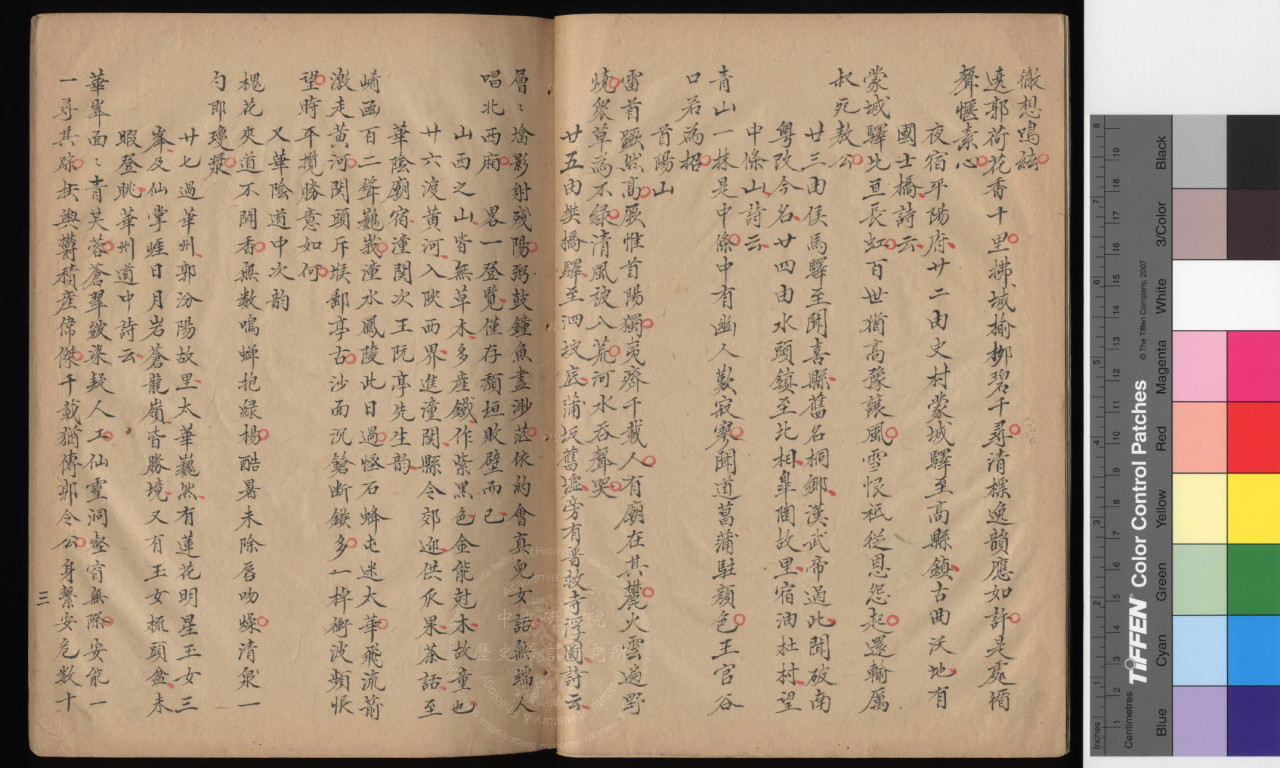 徹想鳴絃
遠郭荷花香十里拂城榆柳碧千尋清標逸韻應如許是處循
聲愜素心
夜宿平陽府廿二由史村蒙城驛至高縣鎮古曲沃地有
國士橋詩云
蒙城驛北亘長虹百世猶高豫讓風雪恨祗從恩怨起還輸屬
叔死敖公
廿三由侯馬驛至聞喜縣舊名桐鄉漢武帝過此聞破南
粵改今名廿四由水頭鎮至北相皐陶故里宿油杜村望
中條山詩云
青山一抹是中條中有幽人歎寂寥聞道菖蒲駐顏色王官谷
口若為招
首陽山
雷首蹶然高展惟首陽獨夷齊千載人有廟在其麓火雲遍野
燒衆草為不綠清風設入荒河水吞聲哭
廿五由樊橋驛至泗坡底蒲坂舊墟旁有普救寺浮圖詩云
層層塔影射殘陽粥鼓鐘魚盡渺茫依約會真兒女話無端人
唱北西廂 畧一登覽僅存頹垣敗壁而已
山西之山皆無草木多產鐵作紫黑色金能尅木故童也
廿六渡黃河入陝西界進潼關縣令郊迎供瓜果茶話至
華陰廟宿潼関次王阮亭先生韵
崤函百二聳巍峩潼水風陵此日過怪石蜂屯迷太華飛流箭
激走黃河関頭斥堠鄣亭古沙面沉鎗断鏃多一棹衝波頻悵
望時平攬勝意如何
又華陰道中次韵
槐花夾道不聞香無数鳴蟬抱緑楊酷暑未除唇吻燥清泉一
勺即瓊漿
廿七過華州郭汾陽故里太華巍然有蓮花明星玉女三
峯及仙掌崕日月岩蒼龍嶺皆勝境又有玉女梳頭盆未
暇登眺華州道中詩云
華峯面面青芙蓉蒼翠欲染疑人工仙靈洞壑窅無際安能一
一尋其踪扶輿蓴積産偉傑千載猶傳郭令公身繫安危数十
三
Inches
Centimetres
TIFFEN® Color Control Patches
© The Tiffen Company, 2007
Blue
Cyan
Green
Yellow
Red
Magenta
White
3/Color
Black